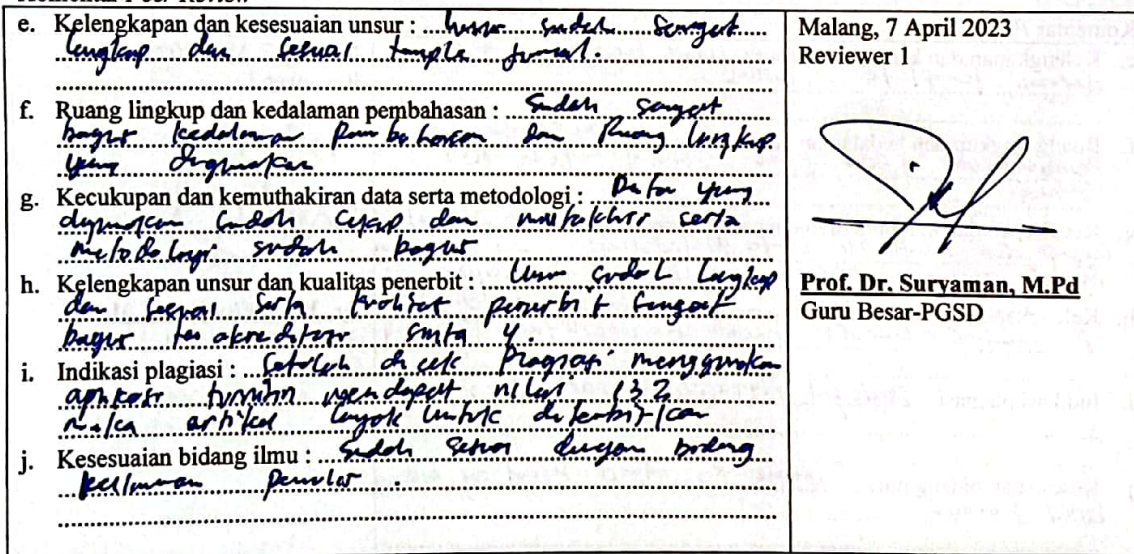 e. Kelengkapan dan kesesuaian unsur : unsur sudah sangat
lengkap dan sesuai templa jurnal
f. Ruang lingkup dan kedalaman pembahasan : Sudah sangat
bagus kedalaman pembahasan dan Ruang lingkup
yang digunakan
g. Kecukupan dan kemuthakiran data serta metodologi : Data yang
digunakan sudah cukup dan mutakhir serta
metodologi sudah bagus
h. Kelengkapan unsur dan kualitas penerbit : Unsur sudah lengkap
dan sesuai serta kualitas penerbit sangat
bagus terakreditasi sinta 4.
i. Indikasi plagiasi : Setelah di cek Plagiasi menggunakan
aplikasi turnitin mendapat nilai
maka artikel layak untuk diterbitkan
j. Kesesuaian bidang ilmu : Sudah sesuai dengan bidang
keilmuan penulis
Malang, 7 April 2023
Reviewer 1
Prof. Dr. Suryaman, M.Pd
Guru Besar-PGSD